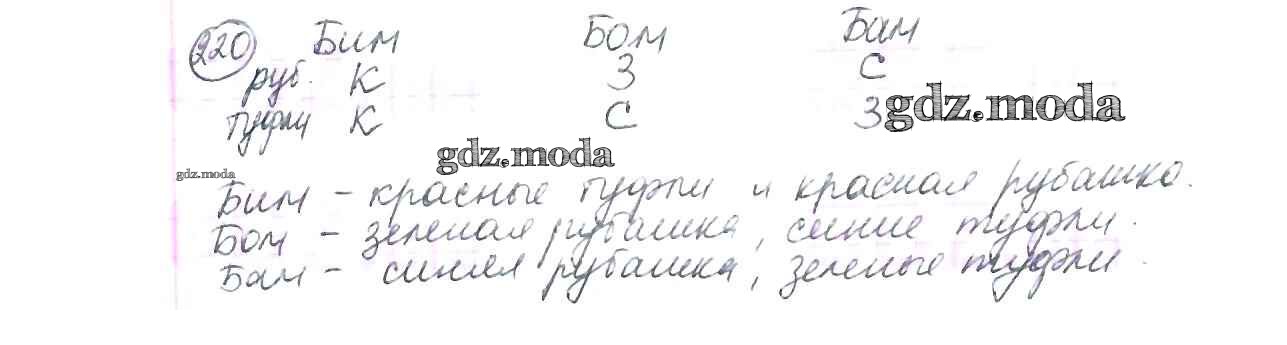 220 Бим Бом Бам
руб. К З С
туфли К С З
gdz.moda
gdz.moda
gdz.moda
Бим – красные туфли и красная рубашка.
Бом – зеленая рубашка, синие туфли.
Бам – синяя рубашка, зеленые туфли.